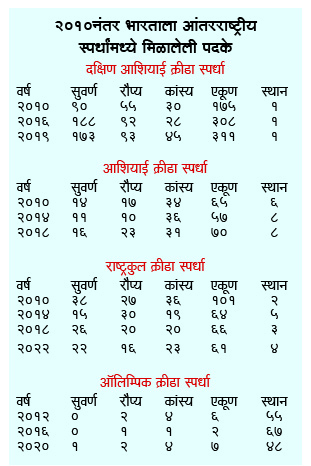 २०१०नंतर भारताला आंतरराष्ट्रीय
स्पर्धांमध्ये मिळालेली पदके
दक्षिण आशियाई क्रीडा स्पर्धा
वर्ष सुवर्ण रौप्य कांस्य एकूण स्थान
२०१० ९० ५५ ३० १७५ १
२०१६ १८८ ९२ २८ ३०८ १
२०१९ १७३ ९३ ४५ ३११ १
आशियाई क्रीडा स्पर्धा
वर्ष सुवर्ण रौप्य कांस्य एकूण स्थान
२०१० १४ १७ ३४ ६५ ६
२०१४ ११ १० ३६ ५७ ८
२०१८ १६ २३ ३१ ७० ८
राष्ट्रकुल क्रीडा स्पर्धा
वर्ष सुवर्ण रौप्य कांस्य एकूण स्थान
२०१० ३८ २७ ३६ १०१ २
२०१४ १५ ३० १९ ६४ ५
२०१८ २६ २० २० ६६ ३
२०२२ २२ १६ २३ ६१ ४
ऑलिम्पिक क्रीडा स्पर्धा
वर्ष सुवर्ण रौप्य कांस्य एकूण स्थान
२०१२ ० २ ४ ६ ५५
२०१६ ० १ १ २ ६७
२०२० १ २ ४ ७ ४८